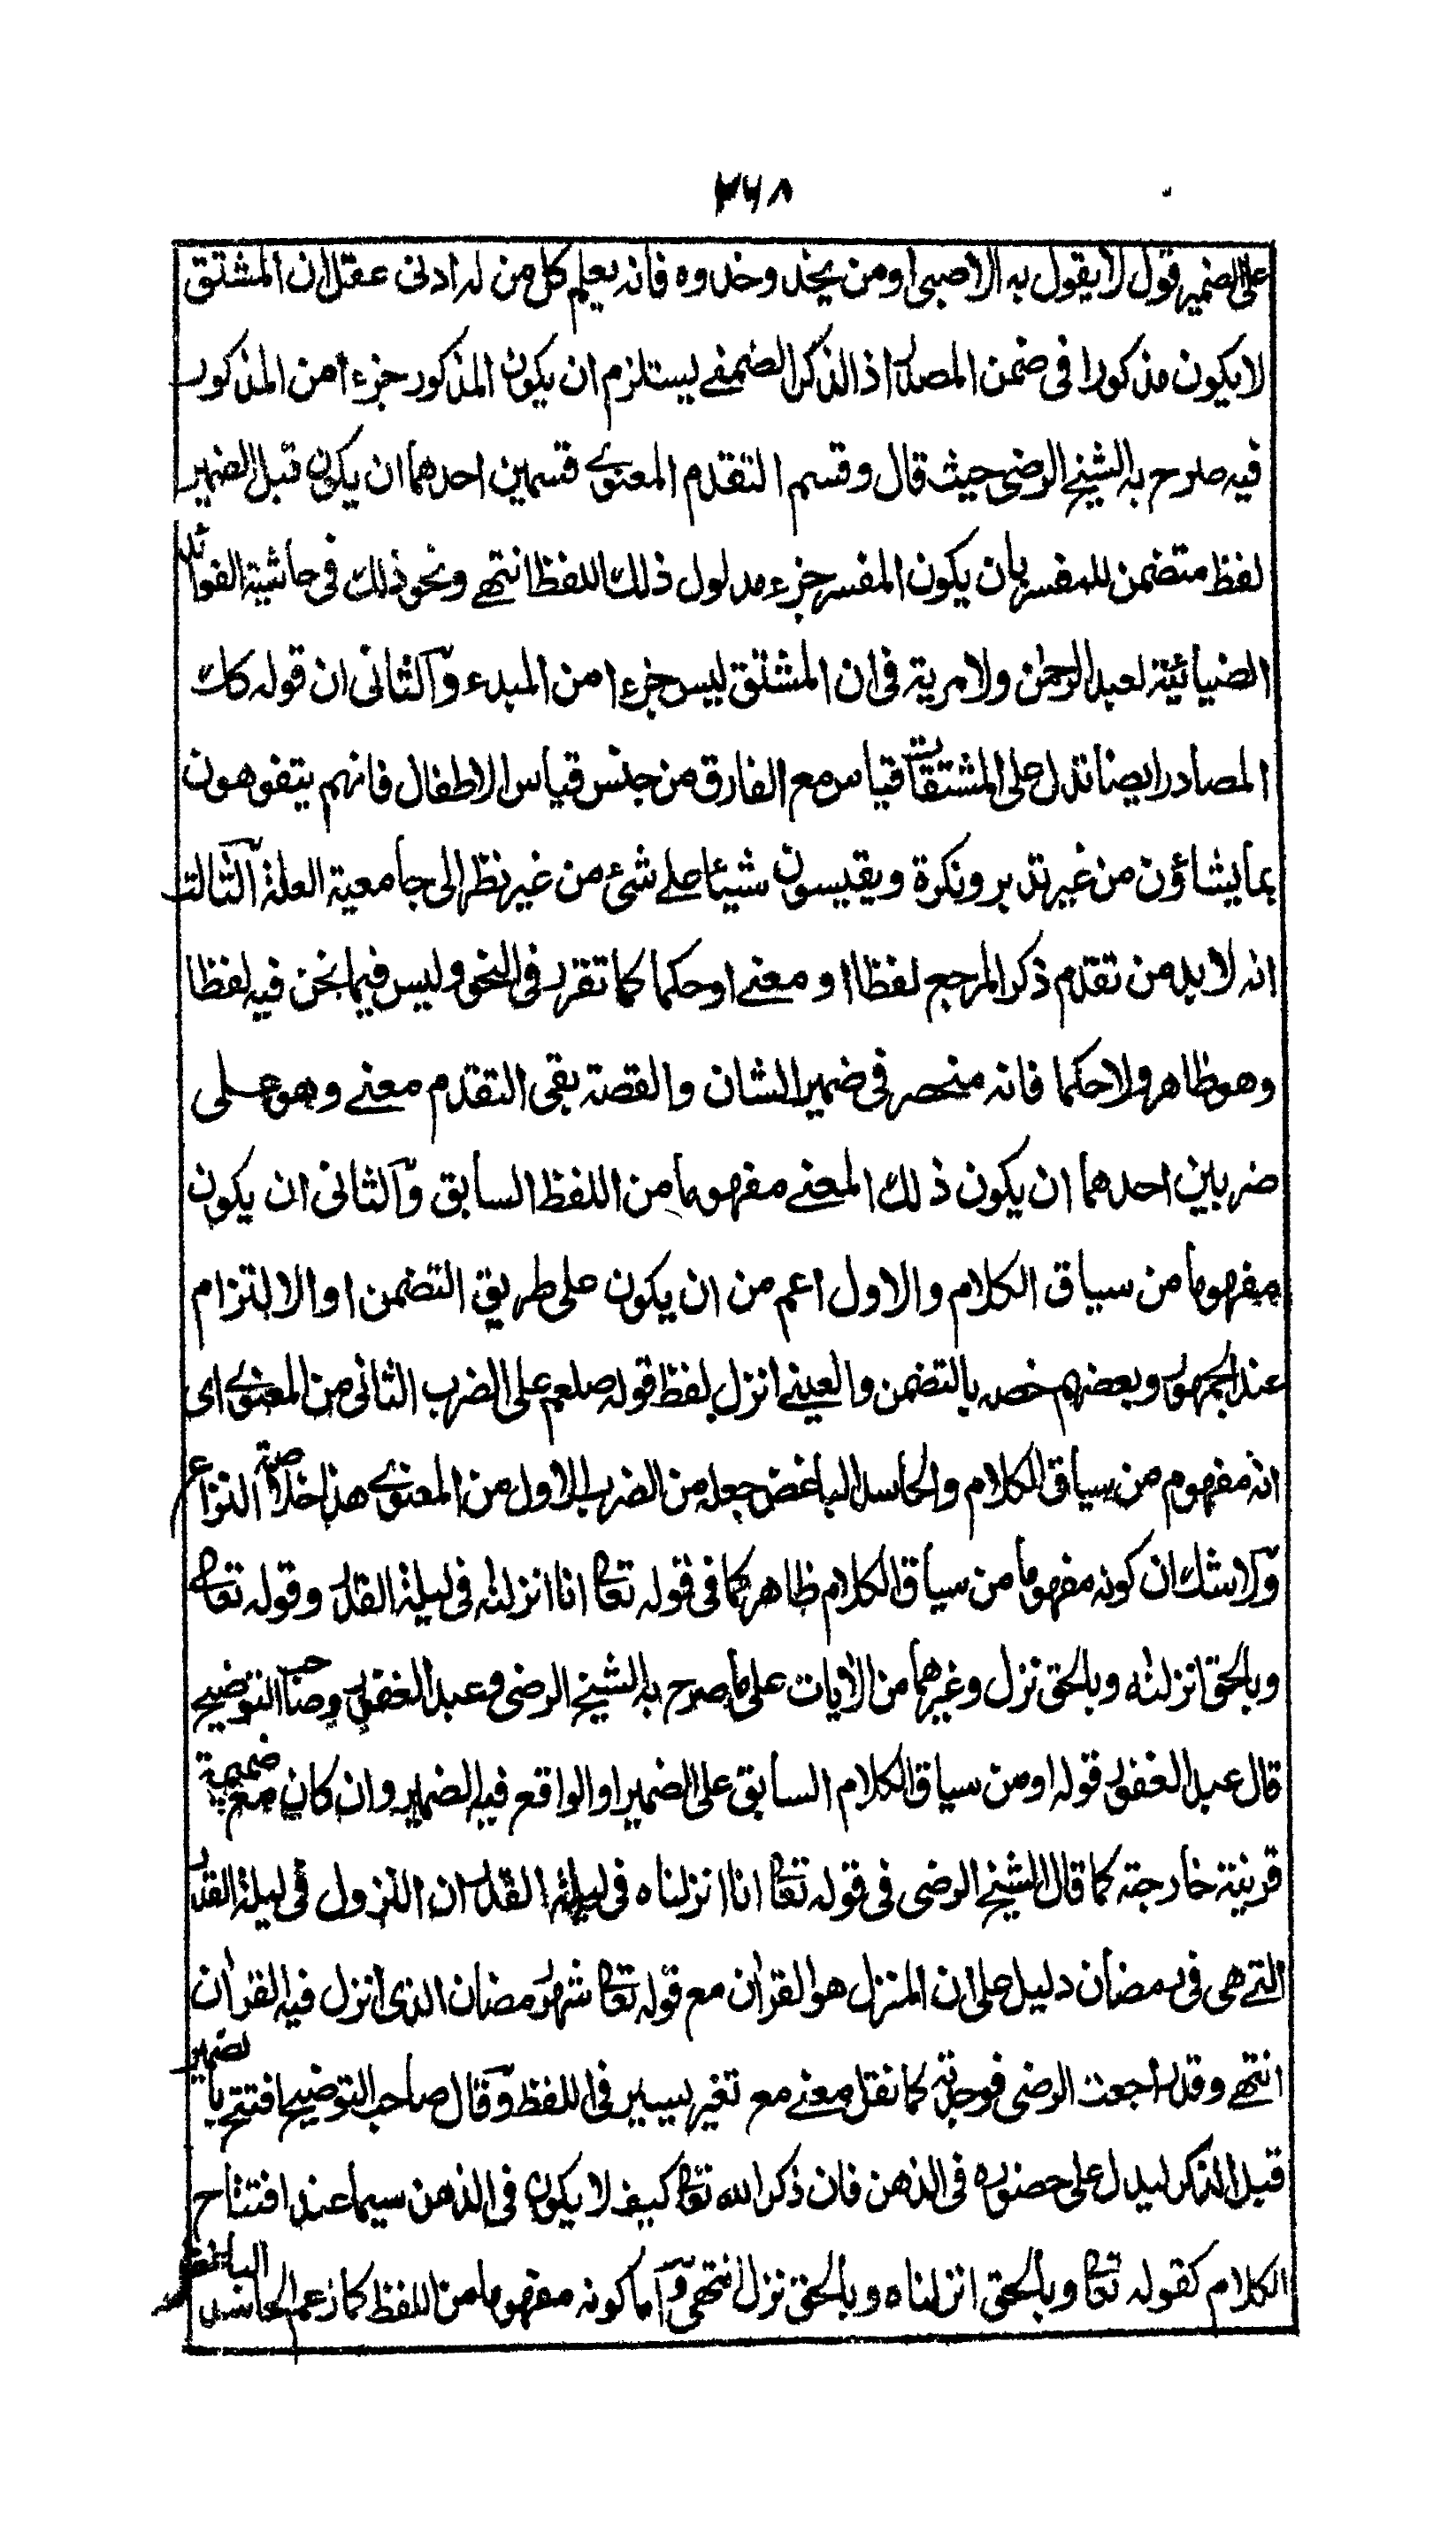 ٢٦٨
على الضمير قول لا يقول به الا صبى او من يحذ وحذوه فانه يعلم كل من له ادنى عقل ان المشتق
لا يكون مذكورا فى ضمن المصدر اذ الذكر الضمنے يستلزم ان يكون المذكور جزء امن المذكور
فيه صرح به الشيخ الرضى حيث قال وقسم التقدم المعنوے قسمين احدهما ان يكون قبل الضمير
لفظ متضمن للمفسر بان يكون المفسر جزء مدلول ذلك اللفظ انتهے ونحو ذلك فى حاشية الفوائد
الضيائية لعبد الرحمٰن ولا مرية فى ان المشتق ليس جزء امن المبدء وآلثانى ان قوله كك
المصادر ايضا تدل على المشتقات قياس مع الفارق من جنس قياس الاطفال فانهم يتفوهون
بما يشاؤن من غير تدبر ونكرة ويقيسون شيئا علے شئ من غير نظر الى جامعية العلة آلثالث
انه لا بد من تقدم ذكر المرجع لفظا او معنے او حكما كما تقرر فى النحو وليس فيما نحن فيه لفظا
وهو ظاهر ولا حكما فانه منحصر فى ضمير الشان والقصة بقى التقدم معنے وهو على
ضربين احدهما ان يكون ذلك المعنے مفهوما من اللفظ السابق وآلثانى ان يكون
مفهوما من سياق الكلام والاول اعم من ان يكون على طريق التضمن او الالتزام
عند الجمهور وبعضهم خصه بالتضمن والعينے انزل لفظ قوله صلعم على الضرب الثانى من المعنوے اى
انه مفهوم من سياق الكلام والحاسد الباغض جعله من الضرب الاول من المعنوے هذا خلاصة النزاع
وآلاشك ان كونه مفهوما من سياق الكلام ظاهر كما فى قوله تعا انا انزلنٰه فى ليلة القدر وقوله تعالے
وبالحق انزلنٰه وبالحق نزل وغيرهما من الاٰيات على ما صرح به الشيخ الرضى وعبد الغفور وصاحب التوضيح
قال عبد الغفور قوله او من سياق الكلام السابق على الضمير او الواقع فيه الضمير وان كان مع ضميمة
قرينة خارجة كما قال الشيخ الرضى فى قوله تعا انا انزلناه فى ليلة القدر ان النزول فى ليلة القدر
التے هى فى رمضان دليل على ان المنزل هو القراٰن مع قوله تعا شهر رمضان الذى انزل فيه القراٰن
انتهے وقد راجعت الرضى فوجدته كما نقل معنے مع تغير يسير فى اللفظ وقآل صاحب التوضيح افتتح بالضمير
قبل الذكر ليدل على حضوره فى الذهن فان ذكر الله تعا كيف لا يكون فى الذهن سيما عند افتتاح
الكلام كقوله تعا وبالحق انزلناه وبالحق نزل انتهى وآما كونه مفهوما من اللفظ كما زعم الحاسد الباغض